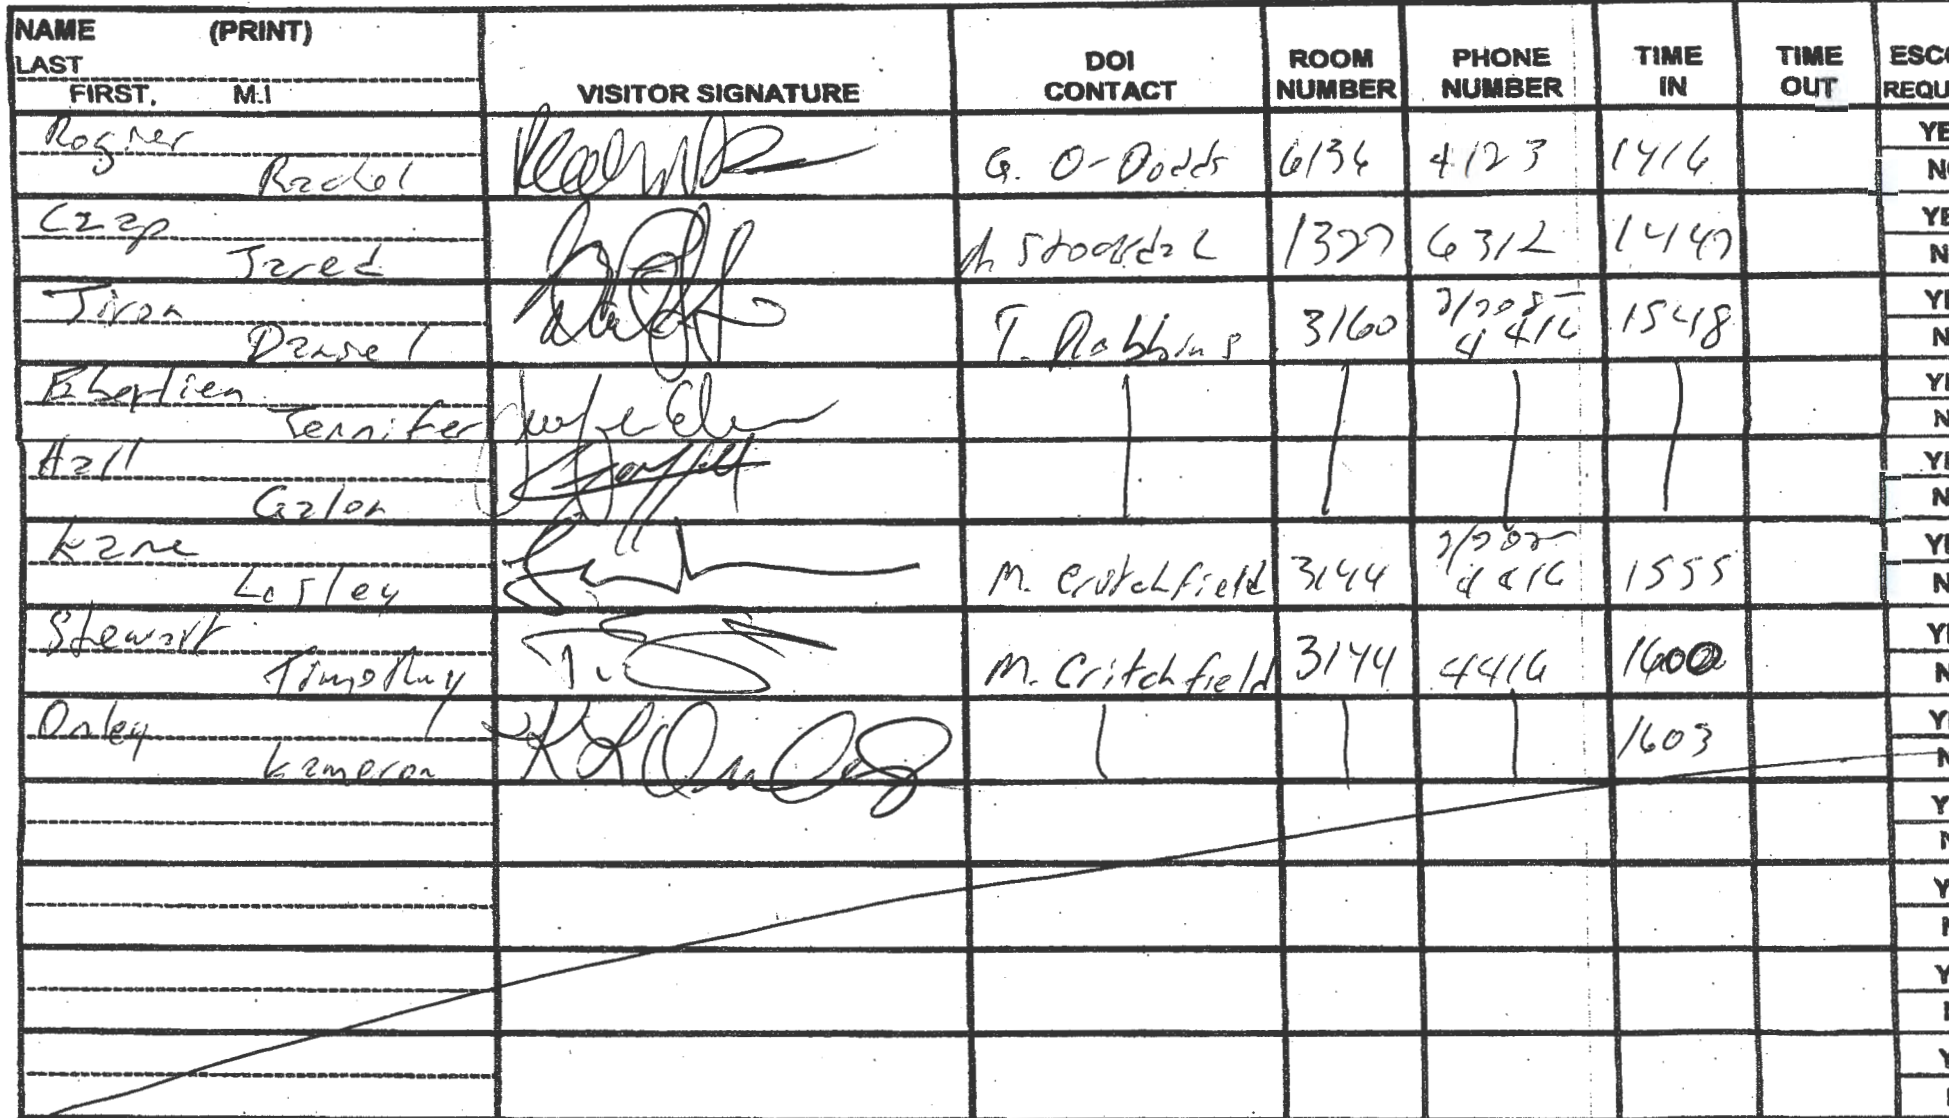 NAME (PRINT)
LAST
FIRST, M.I
VISITOR SIGNATURE
DOI CONTACT
ROOM NUMBER
PHONE NUMBER
TIME IN
TIME OUT
ESCO
REQU
Rogner
Rachel
G. O-Dodds 6136 4123 1416
YE
NO
Czap
Jared
1327 6312 1447
YE
N
Jiron
Daniel
T. Robbins 3160 4416 1548
YE
N
Jennifer
YE
N
Hall
Galen
YE
N
Kane
Lesley
M. Crutchfield 3144 4416 1555
YE
N
Stewart
Timothy
M. Critchfield 3144 4416 1600
YE
N
Onley
Kameron
1603
Y
N
Y
N
Y
Y
Y